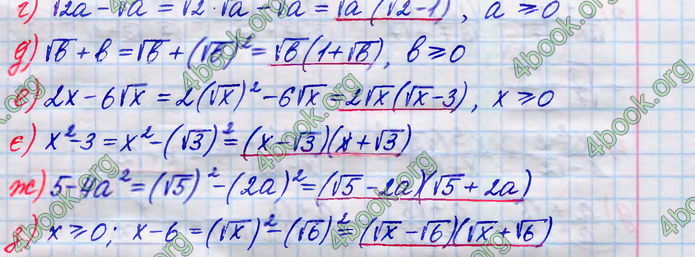 г) √2a - √a = √2 · √a - √a = √a (√2 - 1), a ≥ 0
д) √b + b = √b + (√b)² = √b (1 + √b), b ≥ 0
е) 2x - 6√x = 2(√x)² - 6√x = 2√x(√x - 3), x ≥ 0
є) x² - 3 = x² - (√3)² = (x - √3)(x + √3)
ж) 5 - 4a² = (√5)² - (2a)² = (√5 - 2a)(√5 + 2a)
з) x ≥ 0; x - 6 = (√x)² - (√6)² = (√x - √6)(√x + √6)
4book.org
4book.org
4book.org
4book.org
4book.org
4book.org